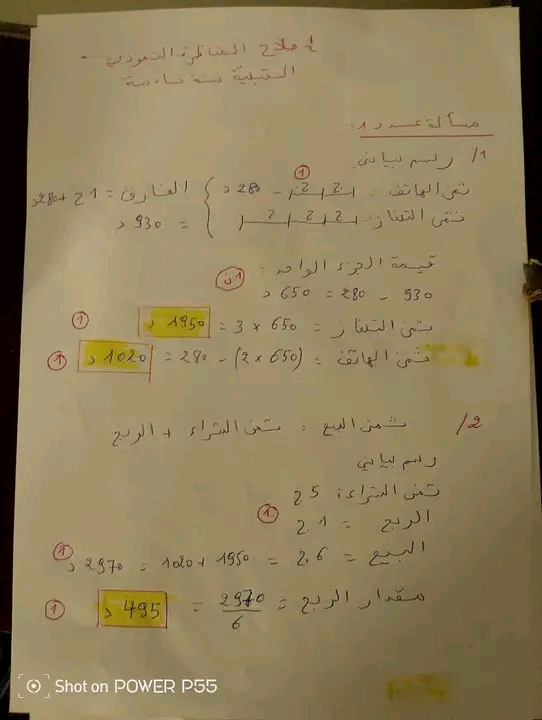 إصلاح المناظرة النموذجية
التجريبية سنة سادسة
مسألة عدد 1:
1/ رسم بياني
ثمن الهاتف: ج ج - 280 د ① الفارق = 1 ج + 280 د
ثمن التلفاز: ج ج ج = 930 د
قيمة الجزء الواحد: ① ن
930 - 280 = 650 د
ثمن التلفاز = 650 × 3 = 1950 د ①
ثمن الهاتف = (650 × 2) - 280 = 1020 د ①
2/ ثمن البيع = ثمن الشراء + الربح
رسم بياني
ثمن الشراء: 5 ج
الربح = 1 ج ①
البيع = 6 ج = 1950 + 1020 = 2970 د ①
مقدار الربح = 2970 / 6 = 495 د ①
Shot on POWER P55